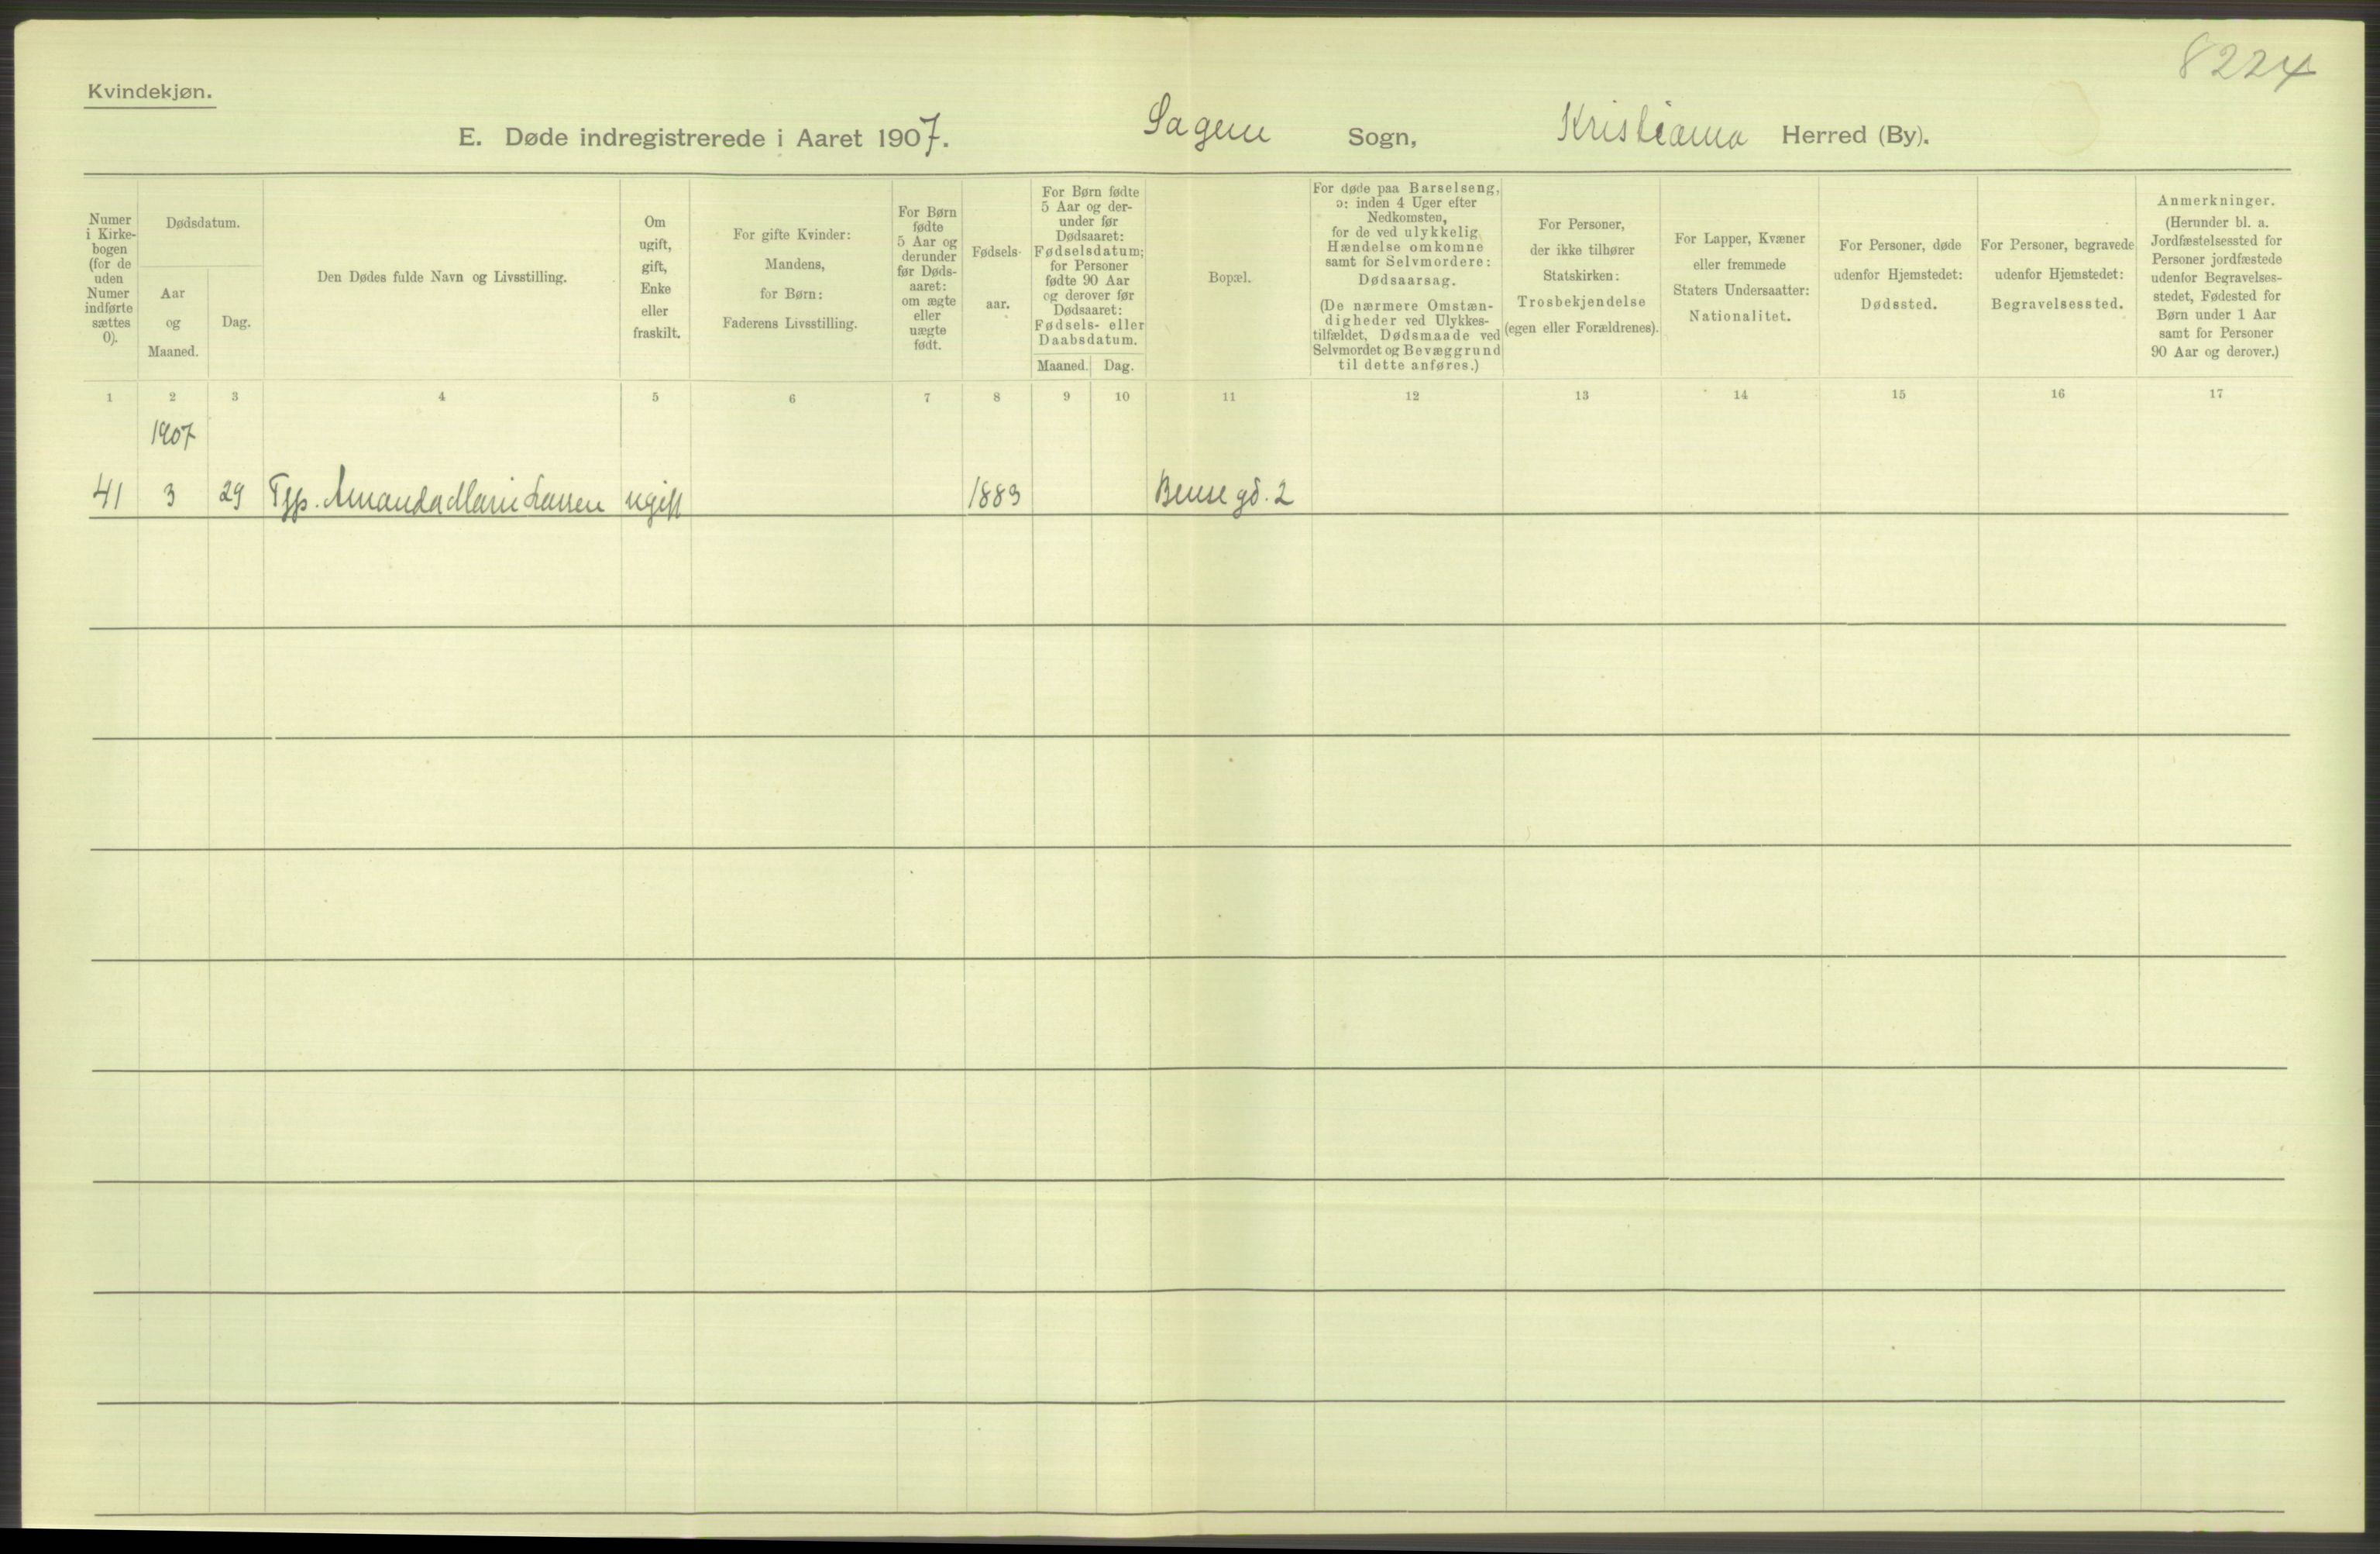 8224
Kvindekjøn.
E. Døde indregistrerede i Aaret 1907. Sagene Sogn, Kristiania Herred (By).
Numer
i Kirke-
bogen
(for de
uden
Numer
indførte
sættes
0).
Dødsdatum.
Aar
og
Maaned.
Dag.
Den Dødes fulde Navn og Livsstilling.
Om
ugift,
gift,
Enke
eller
fraskilt.
For gifte Kvinder:
Mandens,
for Børn:
Faderens Livsstilling.
For Børn
fødte
5 Aar og
derunder
før Døds-
aaret:
om ægte
eller
uægte
født.
Fødsels-
aar.
For Børn fødte
5 Aar og der-
under før
Dødsaaret:
Fødselsdatum;
for Personer
fødte 90 Aar
og derover før
Dødsaaret:
Fødsels- eller
Daabsdatum.
Maaned. Dag.
Bopæl.
For døde paa Barselseng,
ɔ: inden 4 Uger efter
Nedkomsten,
for de ved ulykkelig
Hændelse omkomne
samt for Selvmordere:
Dødsaarsag.
(De nærmere Omstæn-
digheder ved Ulykkes-
tilfældet, Dødsmaade ved
Selvmordet og Bevæggrund
til dette anføres.)
For Personer,
der ikke tilhører
Statskirken:
Trosbekjendelse
(egen eller Forældrenes).
For Lapper, Kvæner
eller fremmede
Staters Undersaatter:
Nationalitet.
For Personer, døde
udenfor Hjemstedet:
Dødssted.
For Personer, begravede
udenfor Hjemstedet:
Begravelsessted.
Anmerkninger.
(Herunder bl. a.
Jordfæstelsessted for
Personer jordfæstede
udenfor Begravelses-
stedet, Fødested for
Børn under 1 Aar
samt for Personer
90 Aar og derover.)
1 2 3 4 5 6 7 8 9 10 11 12 13 14 15 16 17
1907
41 3 29 Amanda Marie Larsen ugift 1883 Bense gd. 2